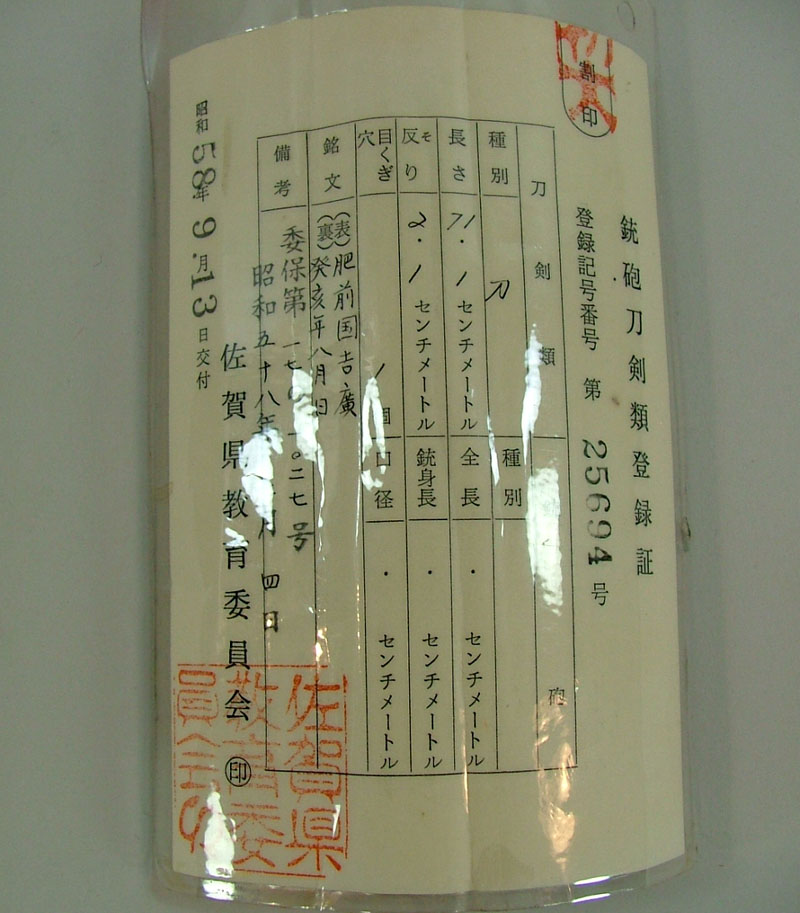 割印
銃砲刀剣類登録証
登録記号番号 第 25694 号
刀剣類
砲
種別 刀
種別
長さ 71.1 センチメートル
全長 . センチメートル
反り そり 2.1 センチメートル
銃身長 . センチメートル
目くぎ穴 1 個
口径 . センチメートル
銘文 (表)肥前国吉廣
(裏)癸亥年八月日
備考
委保第 号
昭和五十八年 月 四日
昭和 58年 9月 13日交付
佐賀県教育委員会 印
佐賀県
教育委
員会